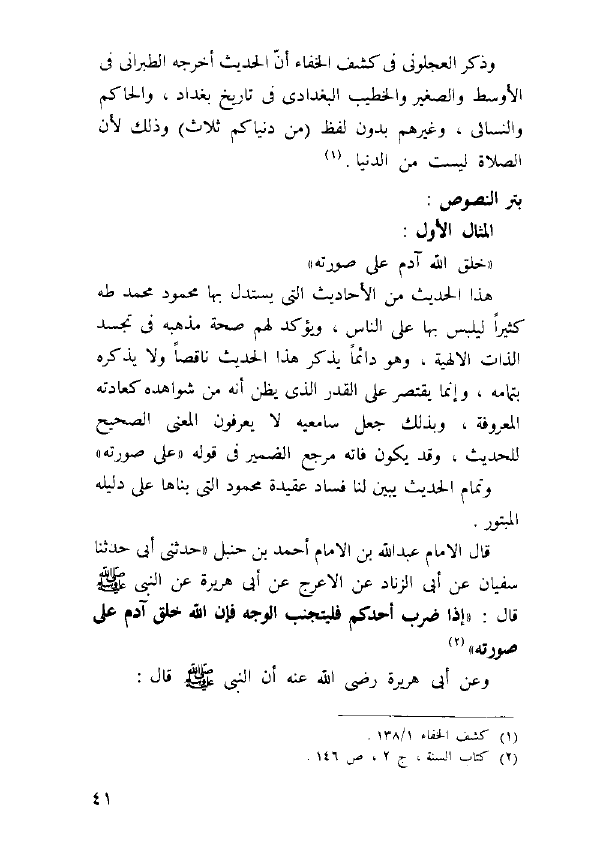 وذكر العجلونى فى كشف الخفاء أنّ الحديث أخرجه الطبرانى فى
الأوسط والصغير والخطيب البغدادى فى تاريخ بغداد ، والحاكم
والنسائى ، وغيرهم بدون لفظ (من دنياكم ثلاث) وذلك لأن
الصلاة ليست من الدنيا . (١)
بتر النصوص :
المثال الأول :
«خلق الله آدم على صورته»
هذا الحديث من الأحاديث التى يستدل بها محمود محمد طه
كثيراً ليلبس بها على الناس ، ويؤكد لهم صحة مذهبه فى تجسد
الذات الالهية ، وهو دائماً يذكر هذا الحديث ناقصاً ولا يذكره
بتمامه ، وإنما يقتصر على القدر الذى يظن أنه من شواهده كعادته
المعروفة ، وبذلك جعل سامعيه لا يعرفون المعنى الصحيح
للحديث ، وقد يكون فاته مرجع الضمير فى قوله «على صورته»
وتمام الحديث يبين لنا فساد عقيدة محمود التى بناها على دليله
المبتور .
قال الامام عبدالله بن الامام أحمد بن حنبل «حدثنى أبى حدثنا
سفيان عن أبى الزناد عن الاعرج عن أبى هريرة عن النبى ﷺ
قال : «إذا ضرب أحدكم فليتجنب الوجه فإن الله خلق آدم على
صورته» (٢)
وعن أبى هريرة رضى الله عنه أن النبى ﷺ قال :
(١) كشف الخفاء ١٣٨/١ .
(٢) كتاب السنة ، ج ٢ ، ص ١٤٦ .
٤١